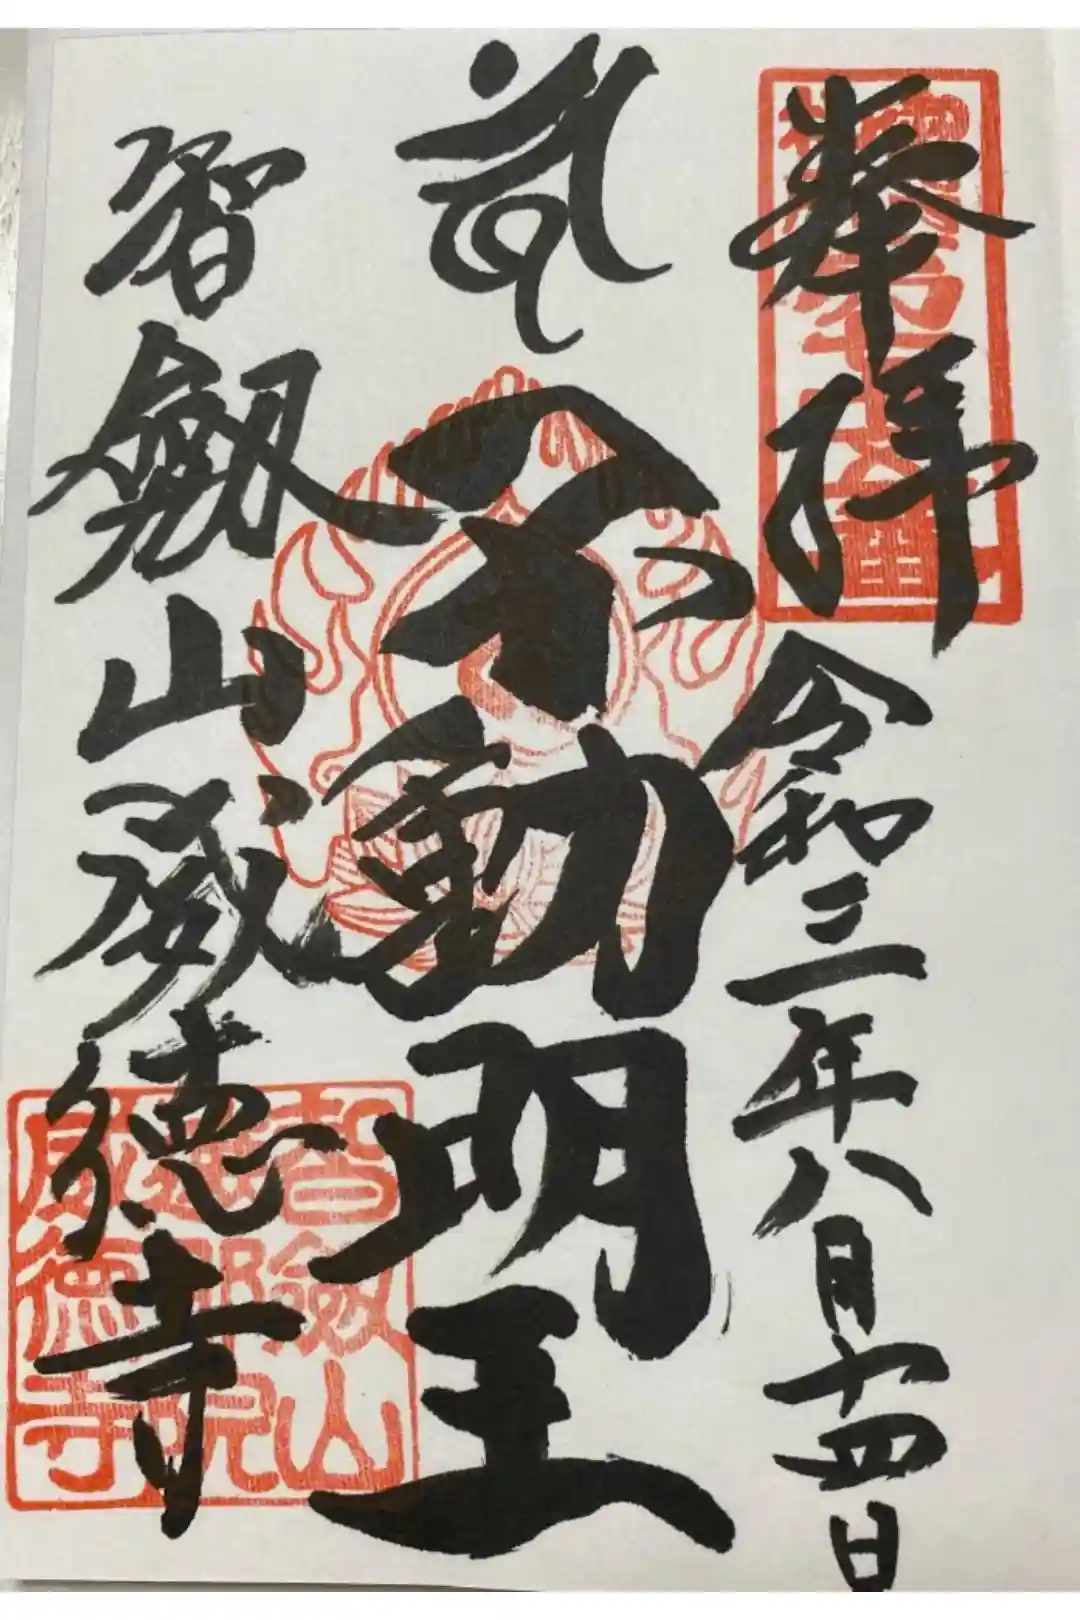 奉拝
令和三年八月十四日
不動明王
智劔山威徳寺